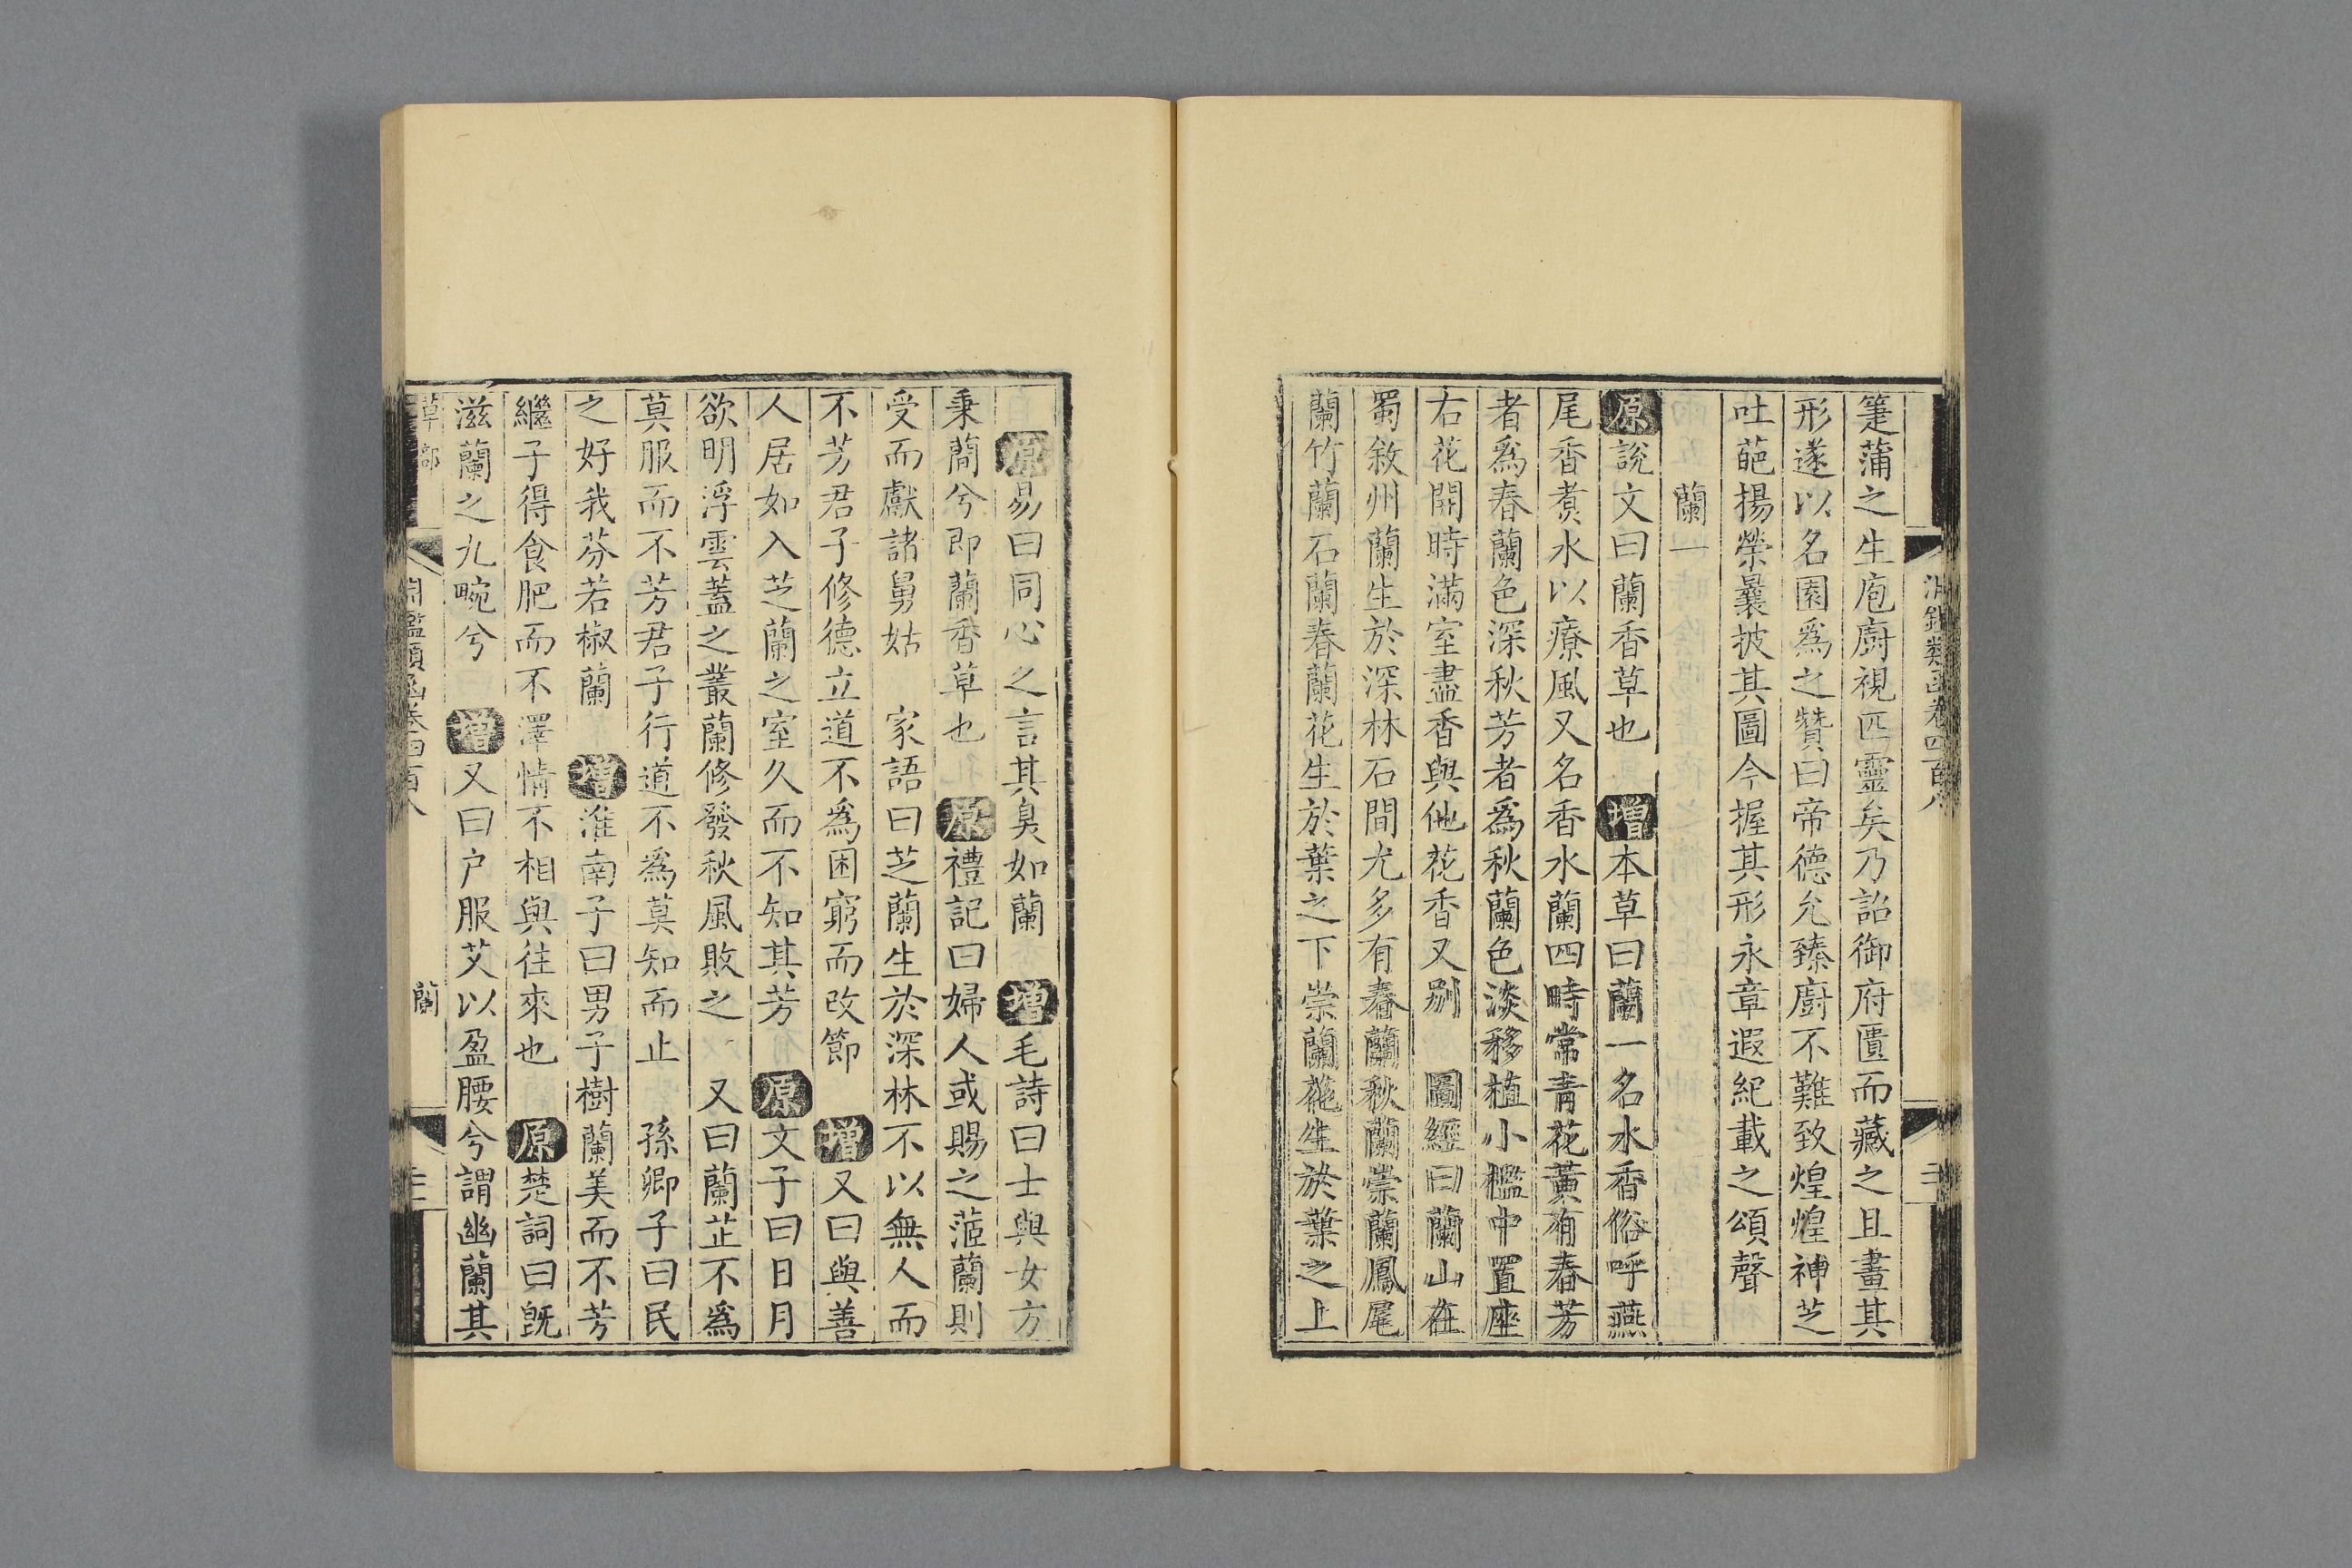 淵鑑類函卷四百八
箑蒲之生庖廚視匹靈矣乃詔御府匱而藏之且畫其
形遂以名園爲之贊曰帝德允臻廚不難致煌煌神芝
吐葩揚榮曩披其圖今握其形永章遐紀載之頌聲
蘭一
原說文曰蘭香草也 增本草曰蘭一名水香俗呼燕
尾香煮水以療風又名香水蘭四時常青花黃有春芳
者爲春蘭色深秋芳者爲秋蘭色淡移植小檻中置座
右花開時滿室盡香與他花香又別 圖經曰蘭山在
蜀敘州蘭生於深林石間尤多有春蘭秋蘭崇蘭鳳尾
蘭竹蘭石蘭春蘭花生於葉之下崇蘭花生於葉之上
原易曰同心之言其臭如蘭 增毛詩曰士與女方
秉蕳兮即蘭香草也 原禮記曰婦人或賜之茝蘭則
受而獻諸舅姑 家語曰芝蘭生於深林不以無人而
不芳君子修德立道不爲困窮而改節 增又曰與善
人居如入芝蘭之室久而不知其芳 原文子曰日月
欲明浮雲蓋之叢蘭修發秋風敗之 又曰蘭芷不爲
莫服而不芳君子行道不爲莫知而止 孫卿子曰民
之好我芬若椒蘭 增淮南子曰男子樹蘭美而不芳
繼子得食肥而不澤情不相與往來也 原楚詞曰旣
滋蘭之九畹兮 增又曰户服艾以盈腰兮謂幽蘭其
草部 淵鑑類函卷四百八 蘭